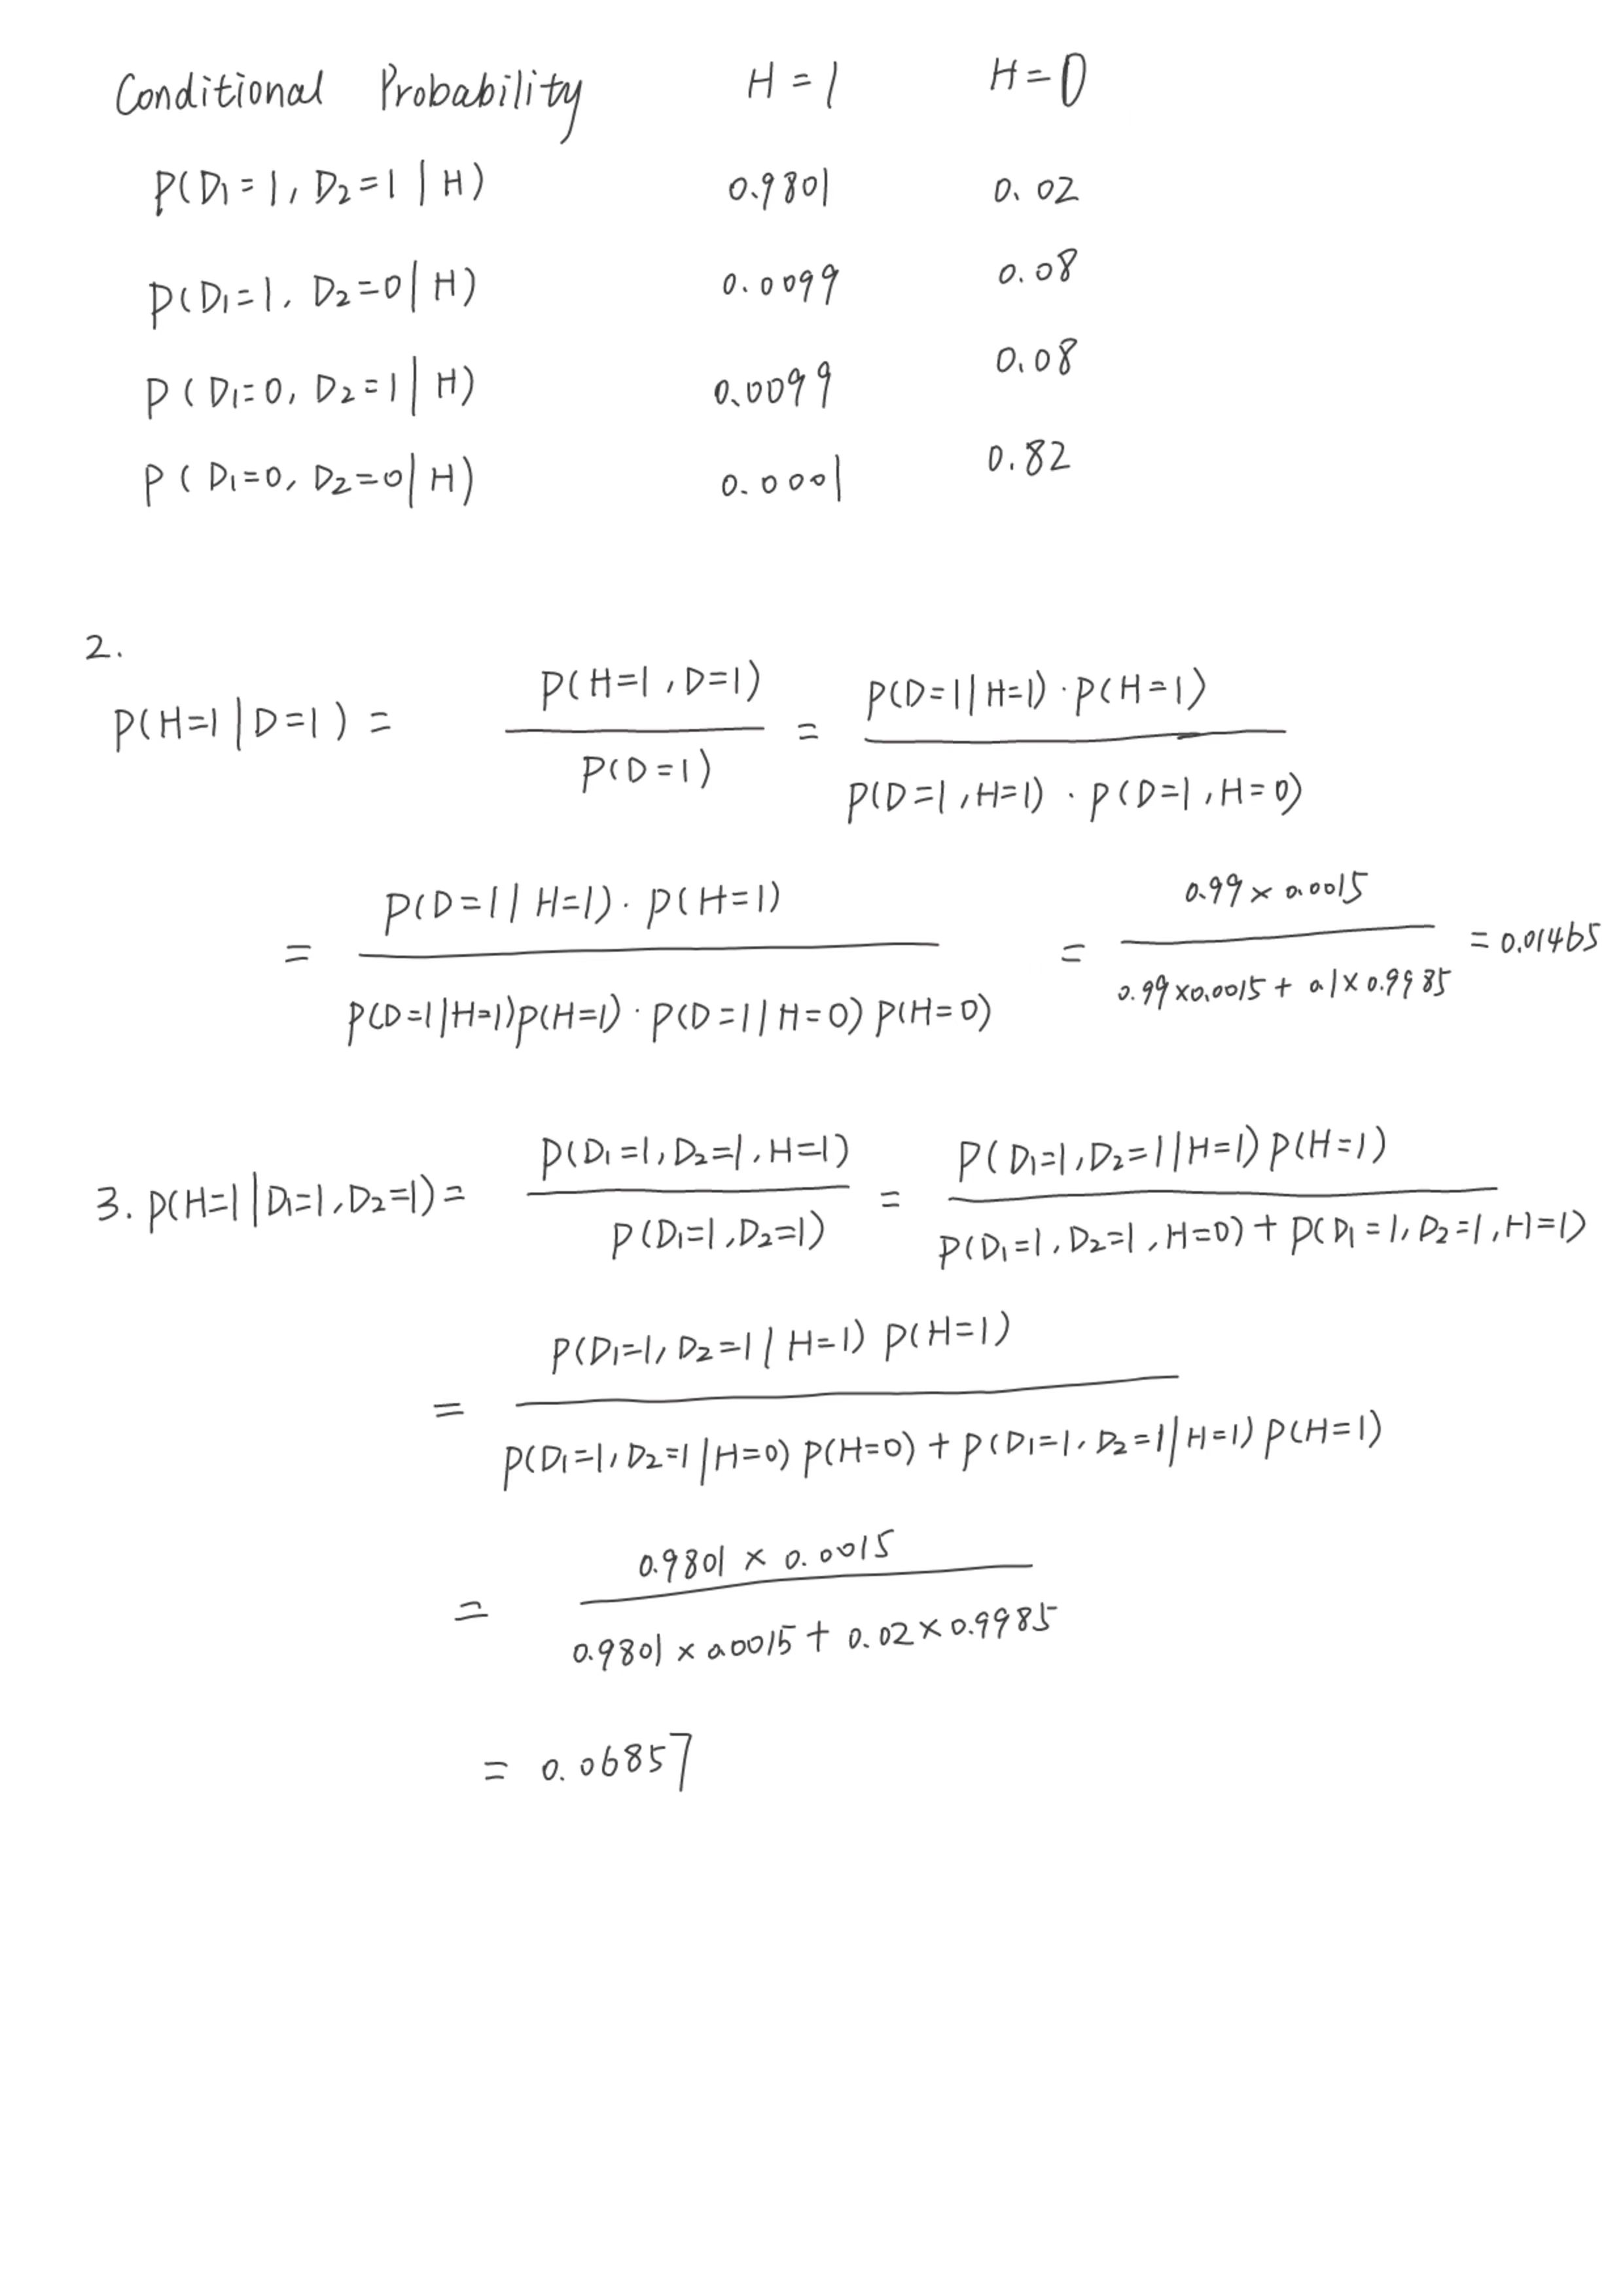 Conditional Probability H = 1 H = 0
P(D₁ = 1, D₂ = 1 | H) 0.9801 0.02
P(D₁ = 1, D₂ = 0 | H) 0.0099 0.08
P(D₁ = 0, D₂ = 1 | H) 0.0099 0.08
P(D₁ = 0, D₂ = 0 | H) 0.0001 0.82
2.
P(H=1 | D=1) = P(H=1, D=1) / P(D=1) = P(D=1 | H=1) · P(H=1) / P(D=1, H=1) · P(D=1, H=0)
= P(D=1 | H=1) · P(H=1) / P(D=1 | H=1) P(H=1) · P(D=1 | H=0) P(H=0) = 0.99 × 0.0015 / 0.99 × 0.0015 + 0.1 × 0.9985 = 0.01465
3. P(H=1 | D₁=1, D₂=1) = P(D₁=1, D₂=1, H=1) / P(D₁=1, D₂=1) = P(D₁=1, D₂=1 | H=1) P(H=1) / P(D₁=1, D₂=1, H=0) + P(D₁=1, D₂=1, H=1)
= P(D₁=1, D₂=1 | H=1) P(H=1) / P(D₁=1, D₂=1 | H=0) P(H=0) + P(D₁=1, D₂=1 | H=1) P(H=1)
= 0.9801 × 0.0015 / 0.9801 × 0.0015 + 0.02 × 0.9985
= 0.06857